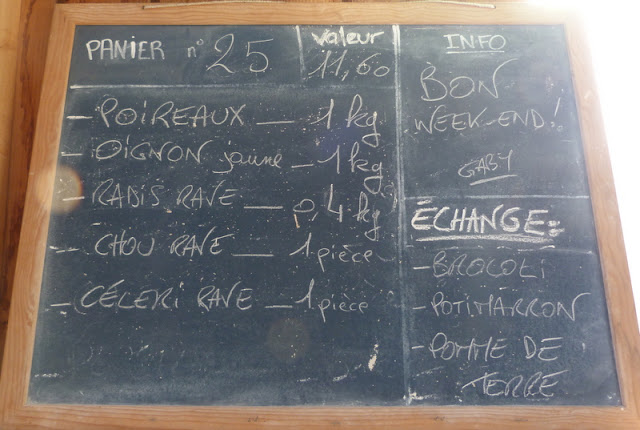 PANIER n° 25
valeur
11,60
- POIREAUX _ 1 kg
- OIGNON jaune - 1 kg
- RADIS RAVE _ 0,4 kg
- CHOU RAVE - 1 pièce
- CÉLERI RAVE - 1 pièce
INFO
BON
WEEK-END!
GABY
ÉCHANGE:
- BROCOLI
- POTIMARRON
- POMME DE
TERRE